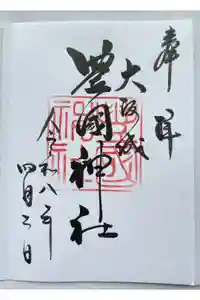 奉拝
大阪城
豊國神社
令和八年
四月二日